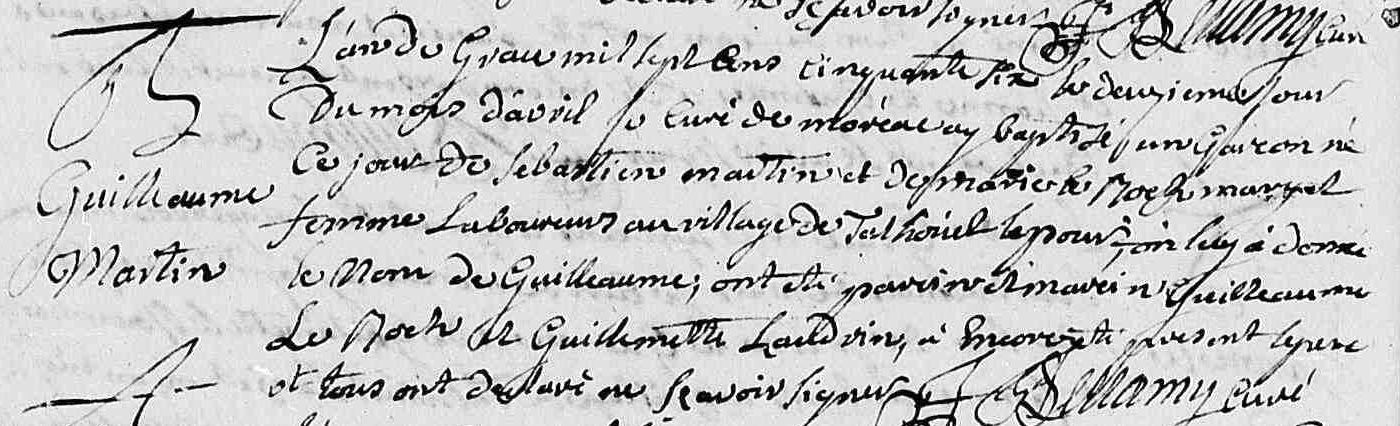 ne sçavoir signer Bellamy curé
B
Guilleaume
Martin
L'an de Grace mil sept cens cinquante six le deuzieme jour
Du mois d'avril je curé de moréac ay baptisé un garcon né
Ce jour de sebastien martin et de marie le Roch marys et
femme Laboureurs au village de Talhoüet on luy à donné
le Nom de Guilleaume; ont eté parein et marein Guilleaume
Le Roch et Guillemette à Encore eté present le pere
et tous ont declaré ne sçavoir signer Bellamy curé